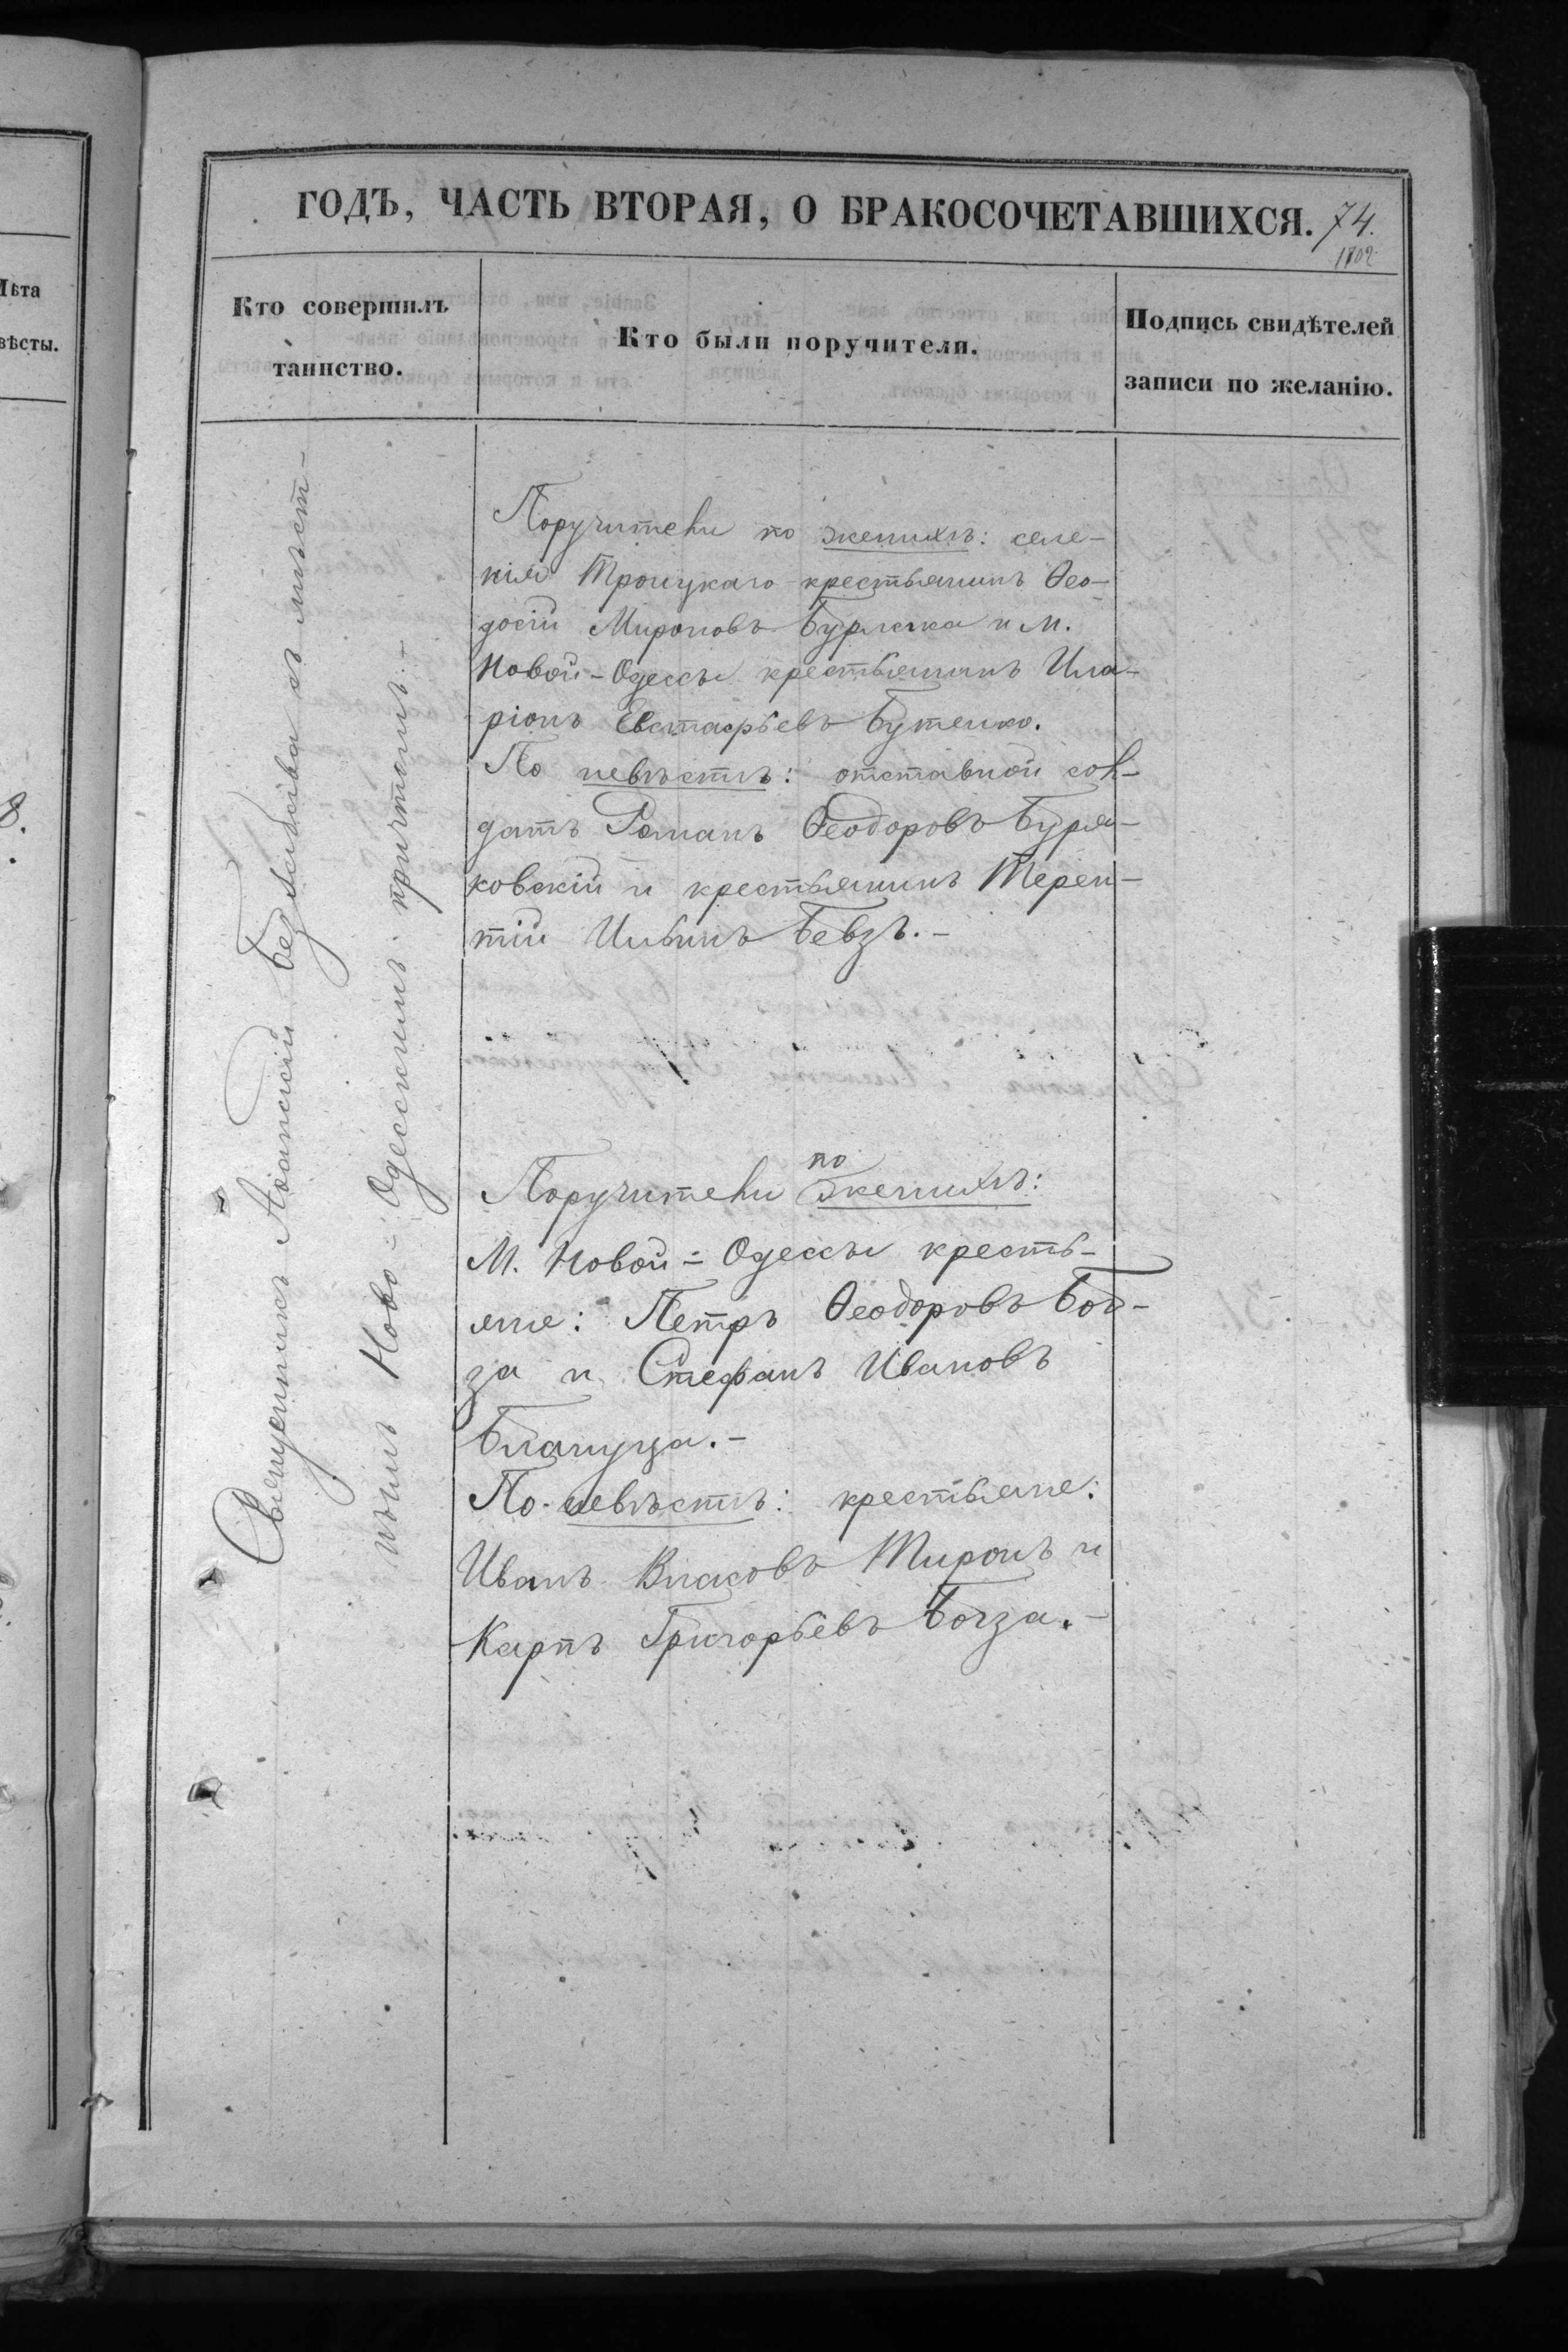 ГОДЪ, ЧАСТЬ ВТОРАЯ, О БРАКОСОЧЕТАВШИХСЯ. 74.
1102
Лѣта
вѣсты.
Кто совершилъ
таинство.
Кто были поручители.
Подпись свидѣтелей
записи по желанію.
8.
Священникъ Аѳанасій въ мѣст-
нымъ Ново-Одесскимъ причтомъ.-
Поручители по женихѣ: селе-
нія Троицкаго крестьянинъ Ѳео-
досій Мироновъ Бурлечка и м.
Новой-Одессы крестьянинъ Ила-
ріонъ Евстафьевъ Бутенко.
По невѣстѣ: отставной сол-
датъ Романъ Ѳеодоровъ Буря-
ковскій и крестьянинъ Терен-
тій Ильинъ Бевзъ.-
Поручители по женихѣ:
М. Новой-Одессы кресть-
яне: Петръ Ѳеодоровъ Бог-
за и Стефанъ Ивановъ
Блануца.-
По невѣстѣ: крестьяне:
Иванъ Власовъ Миронъ и
Карпъ Григорьевъ Богза.-